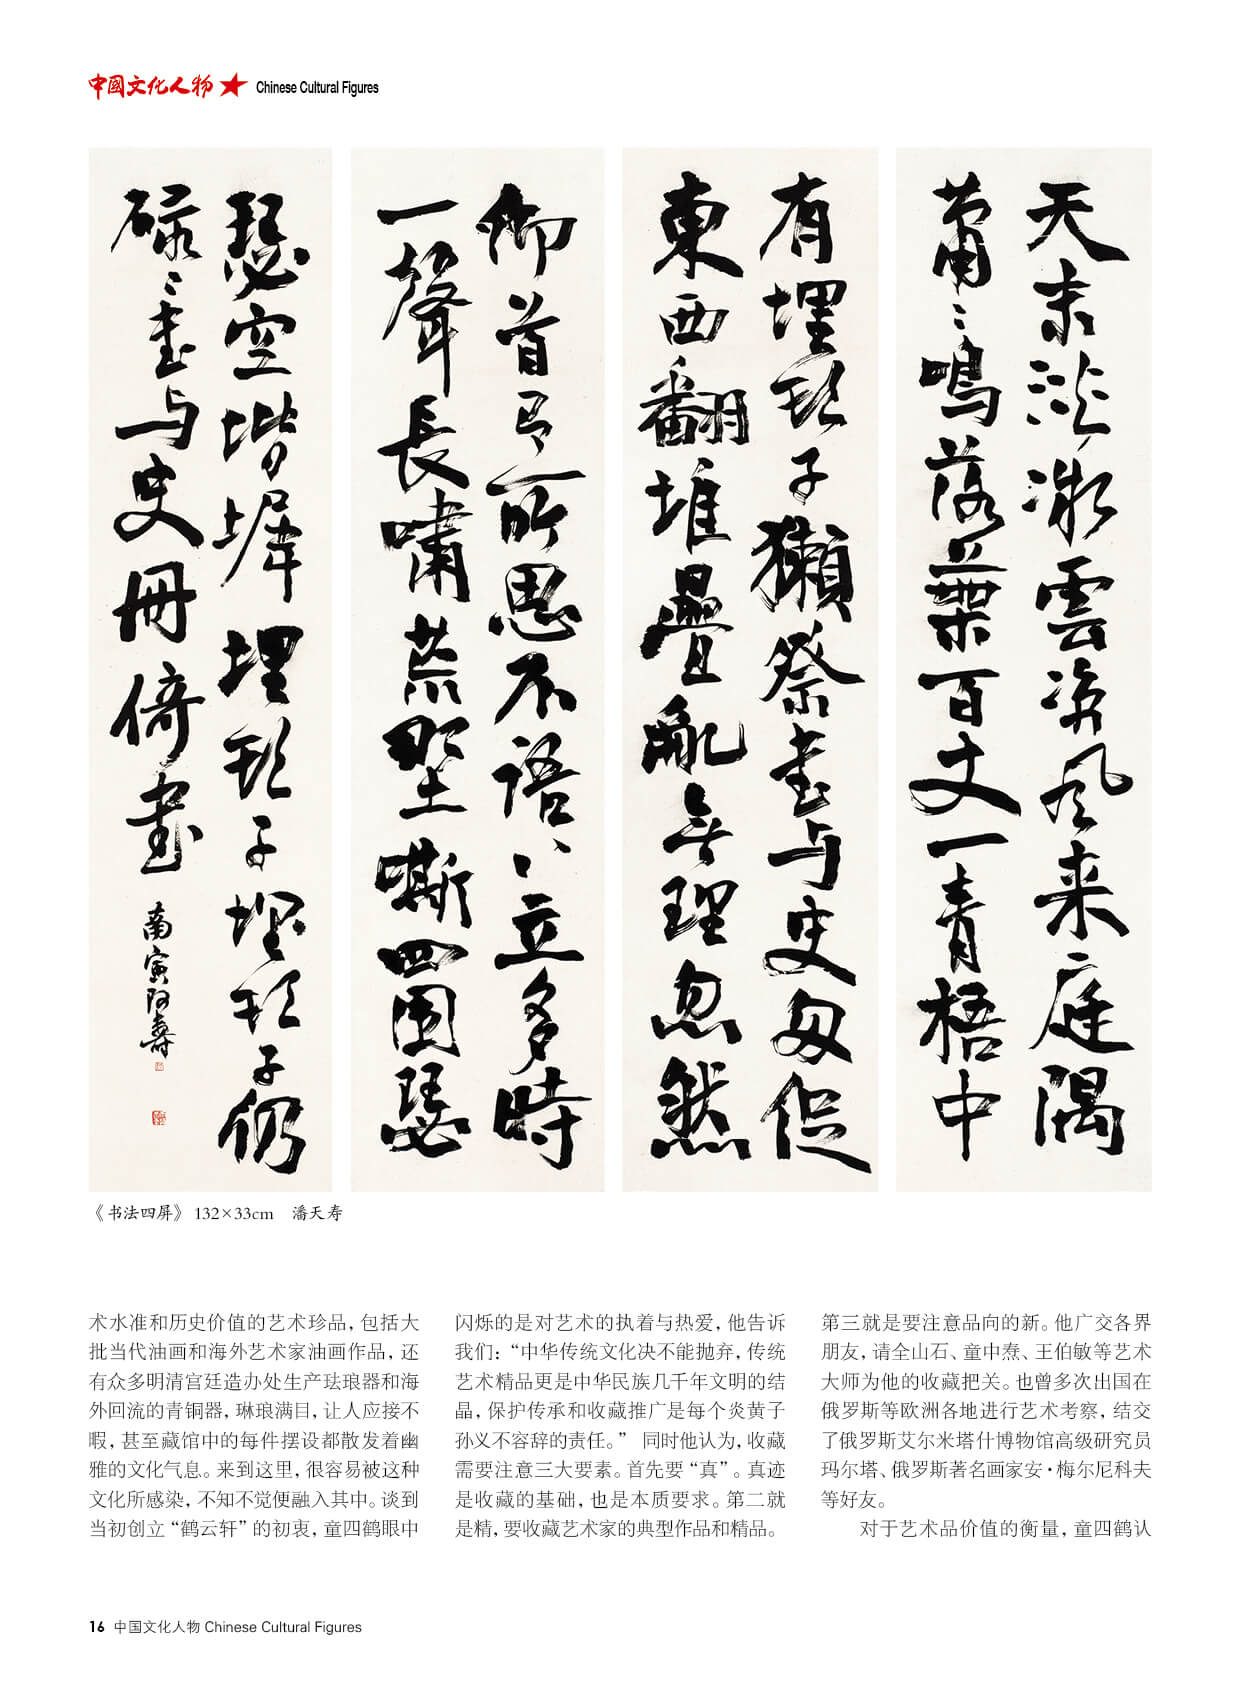 中國文化人物 Chinese Cultural Figures
天末淡淡微雲凉風来庭隅
蕭〻鳴落葉百丈一青梧中
有埋頭子獺祭書与史匆促
東西翻堆疊亂無理忽然
仰首有所思不語〻立多時
一聲長嘯荒野嘶四围瑟
瑟空堦墀埋頭子埋頭子仍
碌〻書与史冊倚畫
阿壽
《书法四屏》 132×33cm 潘天寿
术水准和历史价值的艺术珍品，包括大
批当代油画和海外艺术家油画作品，还
有众多明清宫廷造办处生产珐琅器和海
外回流的青铜器，琳琅满目，让人应接不
暇，甚至藏馆中的每件摆设都散发着幽
雅的文化气息。来到这里，很容易被这种
文化所感染，不知不觉便融入其中。谈到
当初创立“鹤云轩”的初衷，童四鹤眼中
闪烁的是对艺术的执着与热爱，他告诉
我们：“中华传统文化决不能抛弃，传统
艺术精品更是中华民族几千年文明的结
晶，保护传承和收藏推广是每个炎黄子
孙义不容辞的责任。” 同时他认为，收藏
需要注意三大要素。首先要“真”。真迹
是收藏的基础，也是本质要求。第二就
是精，要收藏艺术家的典型作品和精品。
第三就是要注意品向的新。他广交各界
朋友，请全山石、童中焘、王伯敏等艺术
大师为他的收藏把关。也曾多次出国在
俄罗斯等欧洲各地进行艺术考察，结交
了俄罗斯艾尔米塔什博物馆高级研究员
玛尔塔、俄罗斯著名画家安·梅尔尼科夫
等好友。
对于艺术品价值的衡量，童四鹤认
16 中国文化人物 Chinese Cultural Figures